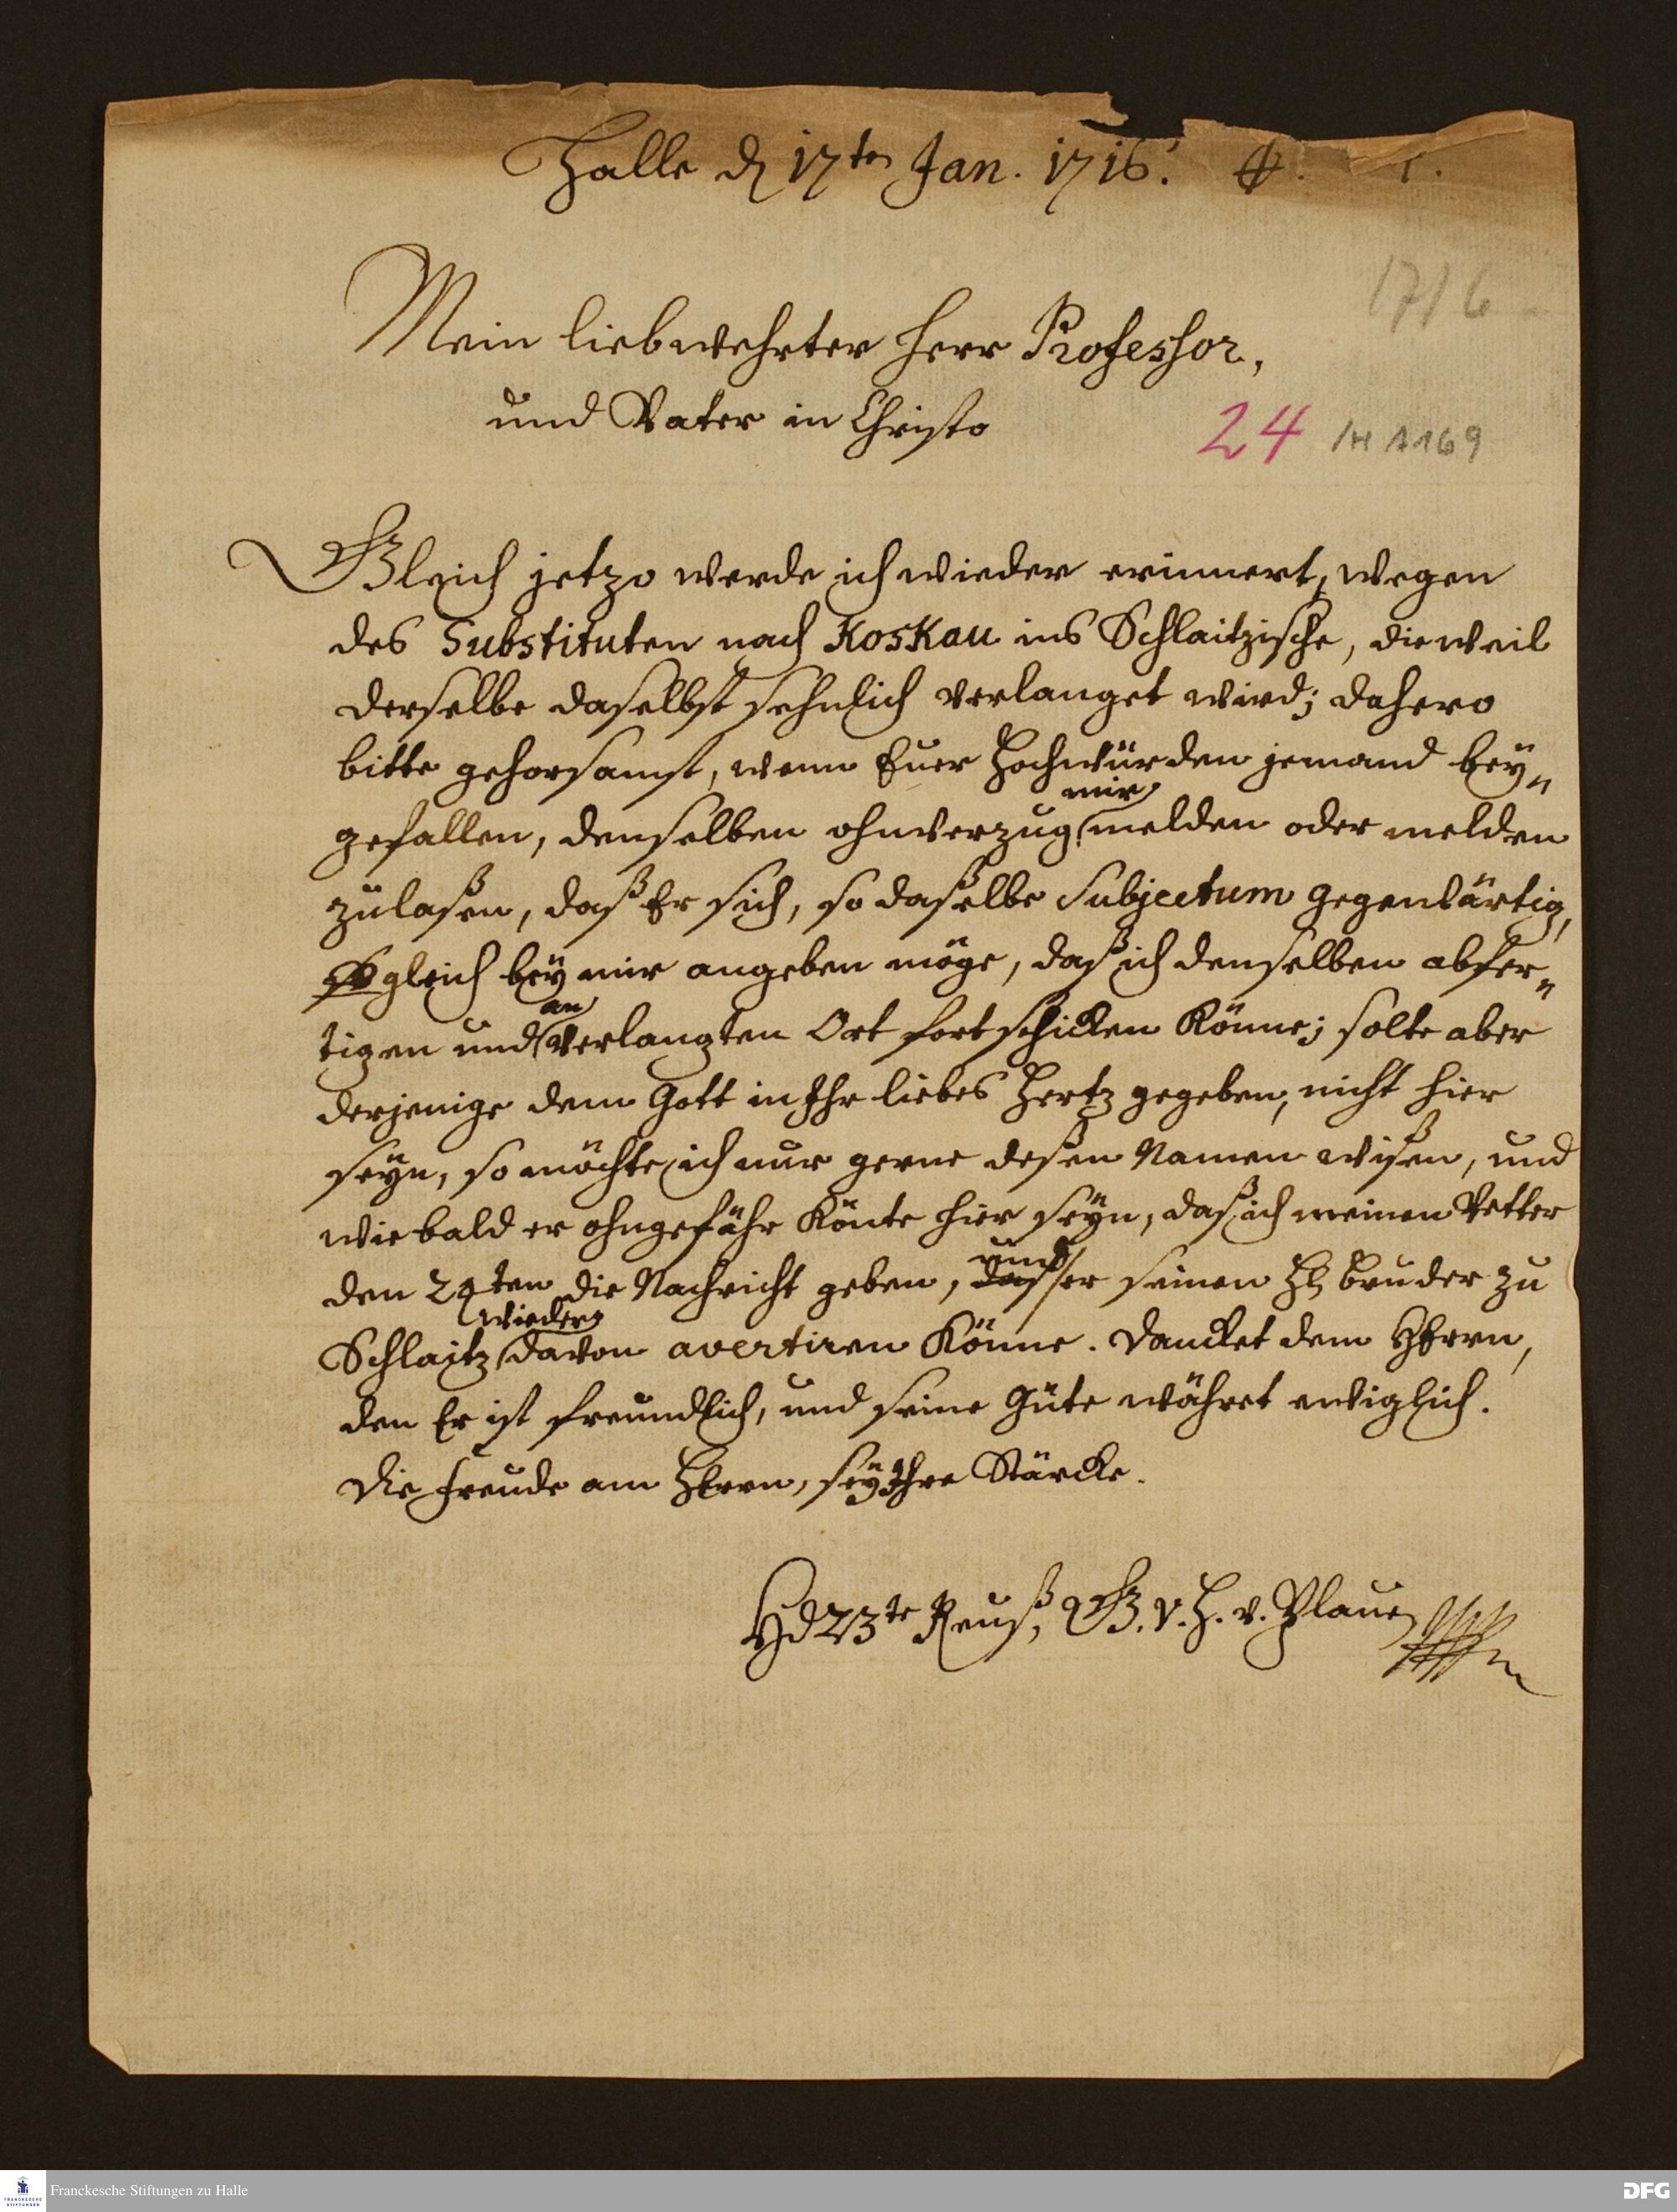 Halle d 17ten Jan. 1716.
1716
Mein liebwehrter Herr Professor,
und Vater in Christo
24 /H A169
Gleich jetzo werde ich wieder erinnert, wegen
des Substituten nach Koskau ins Schlaitzische, dieweil
derselbe daselbst sehnlich verlanget wird; dahero
bitte gehorsamst, wenn Euer Hochwürden jemand bey„
mir
gefallen, denselben ohnverzug melden oder melden
zulaßen, daß Er sich, so daßelbe Subjectum gegenwärtig,
gleich bey mir angeben möge, daß ich denselben abfer„
an
tigen und verlangten Ort fortschicken Könne; solte aber
derjenige dem Gott in Ihr liebes Hertz gegeben, nicht hier
seyn, so möchte ich nur gerne deßen Namen wißen, und
wie bald er ohngefähr Könte hier seyn, daß ich meinen Vetter
und
den 24ten die Nachricht geben, daß er seinen H. Bruder zu
wieder
Schlaitz davon avertiren Könne. Dancket dem HErrn,
den Er ist freundlich, und seine Güte währet ewiglich.
Die Freude am HErrn, sey Ihre Stärcke.
Hd23te Reuß, G. v. H. v. Plauen
Franckesche Stiftungen zu Halle
FRANCKESCHE
STIFTUNGEN
DFG